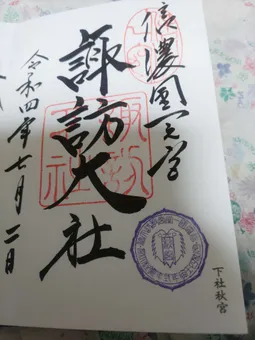 信濃國一之宮
諏訪大社
令和四年七月二日
下社秋宮